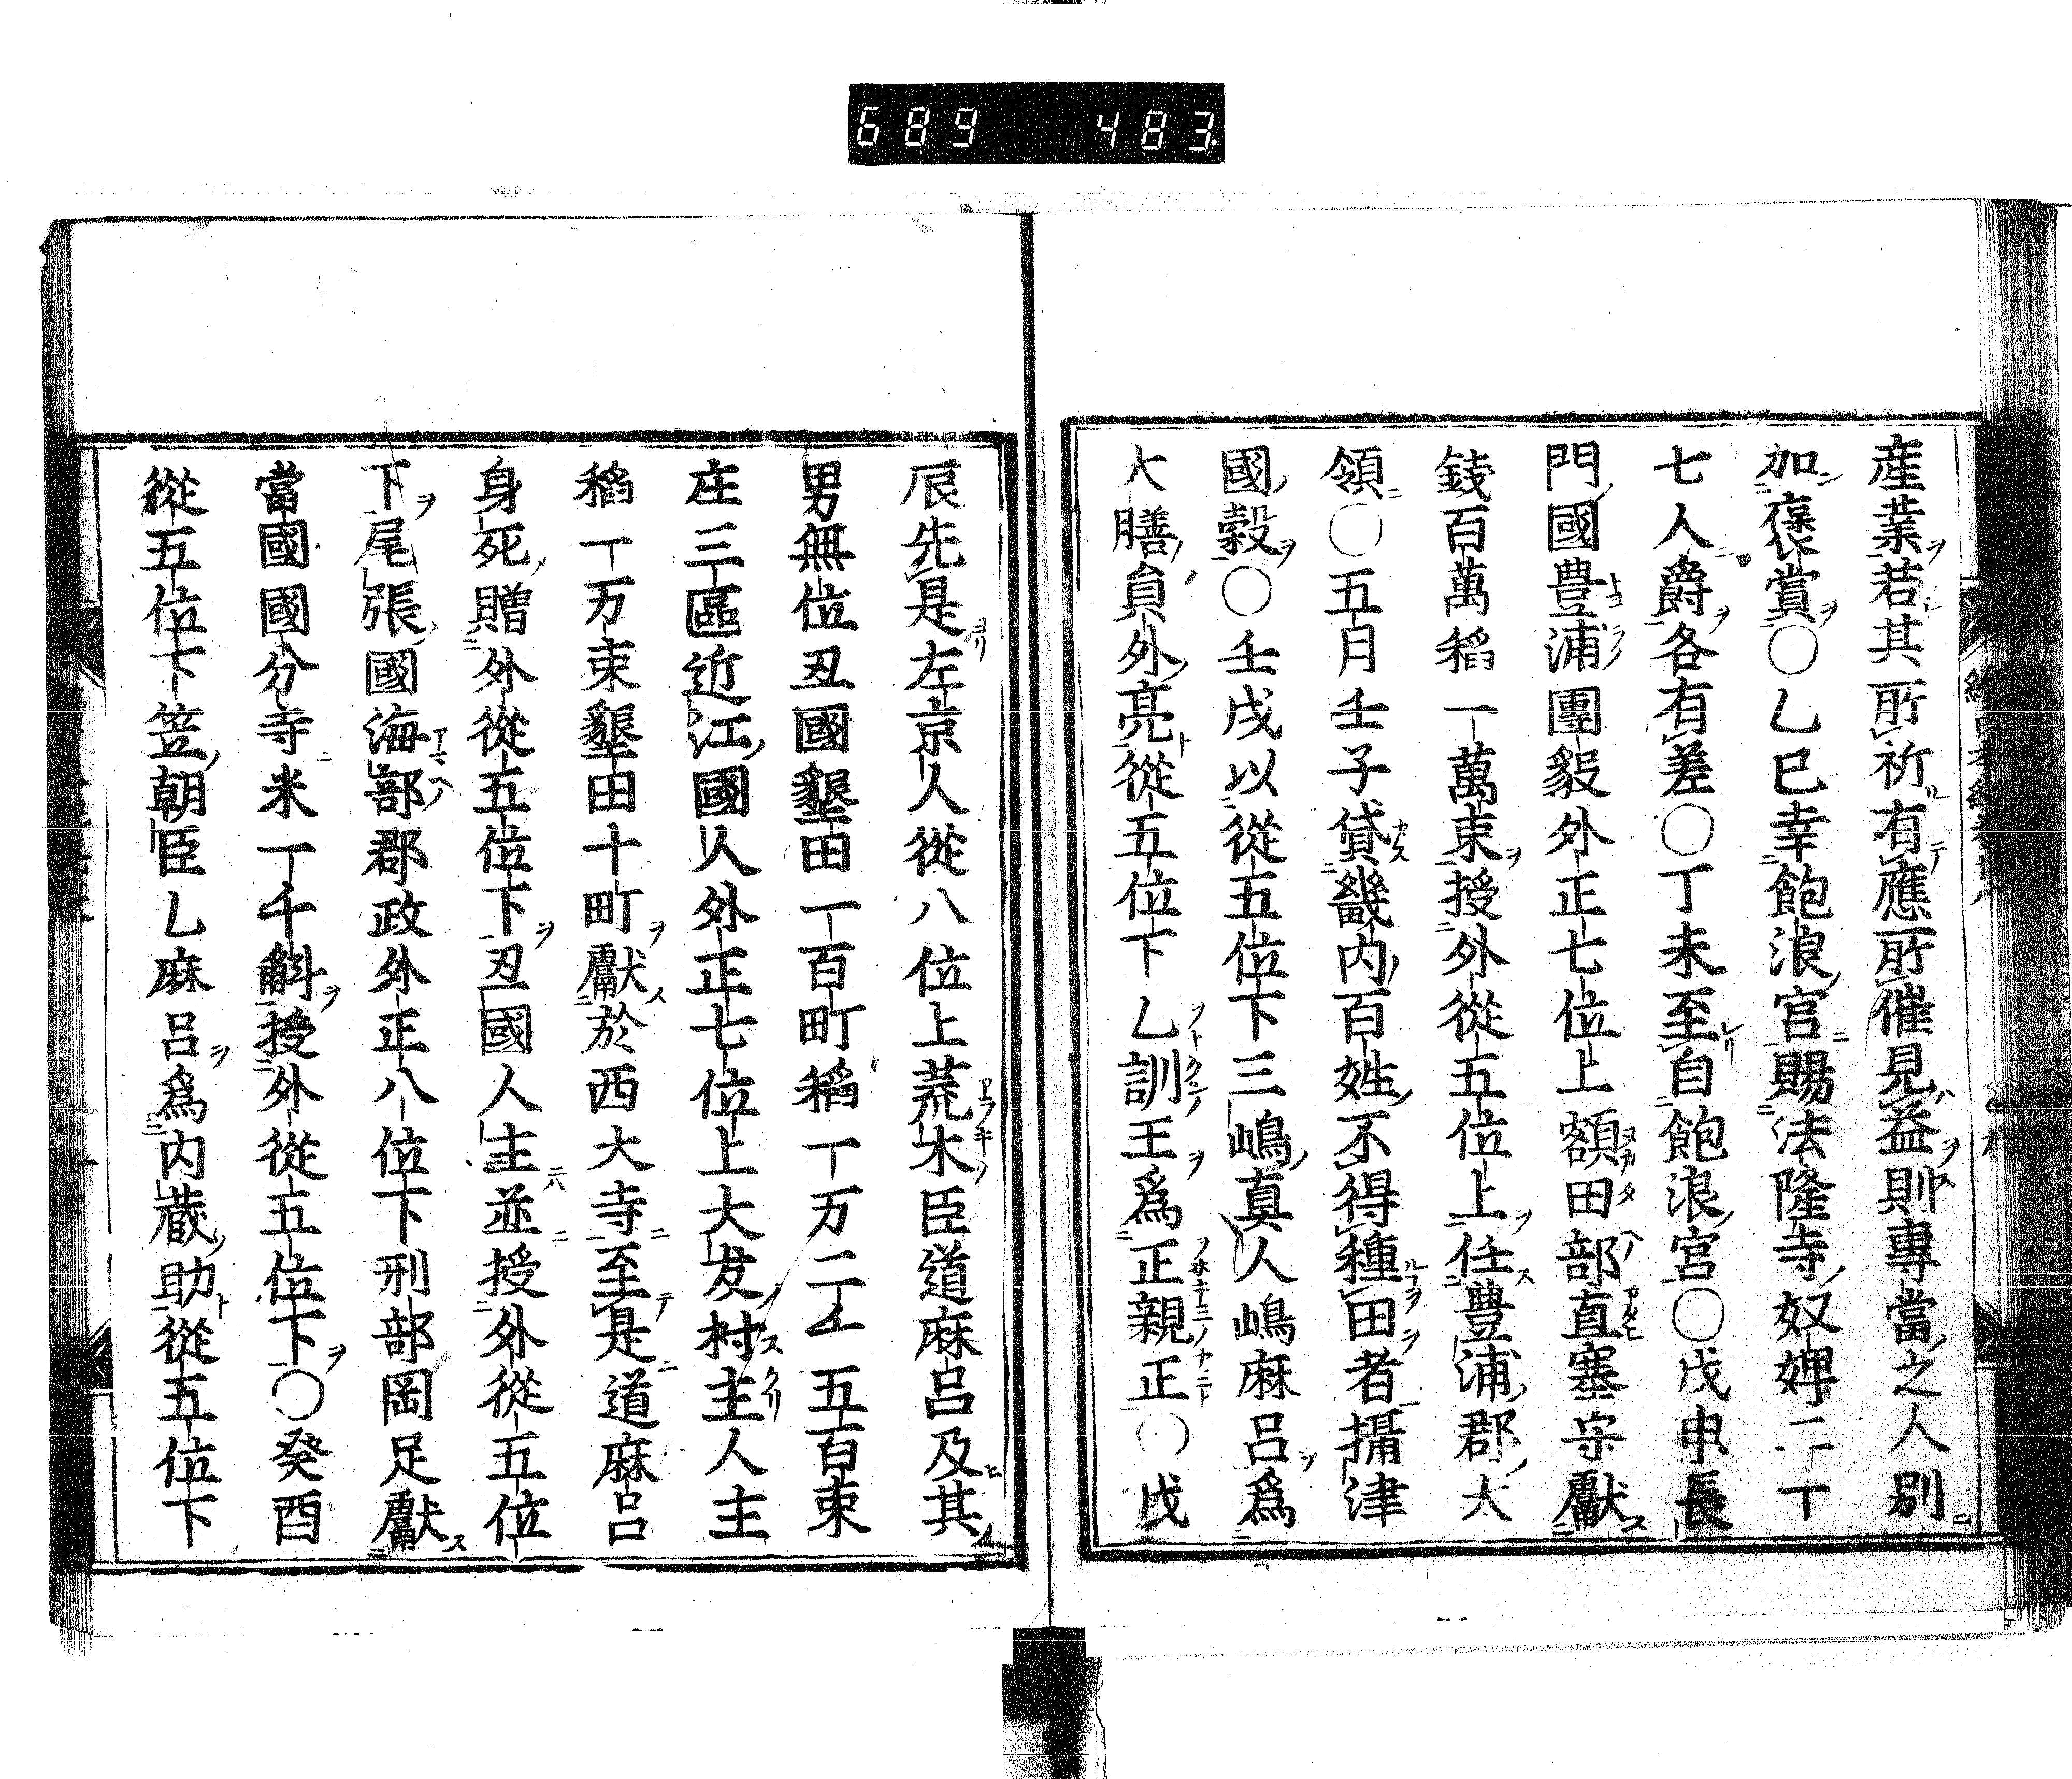 689 483
産業若其所祈有應所催見益則專當之人別
加褒賞〇乙巳幸飽浪宮賜法隆寺奴婢二十
七人爵各有差〇丁未至自飽浪宮〇戊申長
門國豊浦團毅外正七位上額田部直塞守獻
錢百萬稻一萬束授外從五位上任豊浦郡大
領〇五月壬子貸畿内百姓不得種田者攝津
國穀〇壬戌以從五位下三嶋真人嶋麻呂爲
大膳員外亮從五位下乙訓王爲正親正〇戊
辰先是左京人從八位上荒木臣道麻呂及其
男無位忍國墾田一百町稻一万二千五百束
庄三區近江國人外正七位上大友村主人主
稻一万束墾田十町獻於西大寺至是道麻呂
身死贈外從五位下忍國人主並授外從五位
下尾張國海部郡政外正八位下刑部岡足獻
當國國分寺米一千斛授外從五位下〇癸酉
從五位下笠朝臣乙麻呂爲内蔵助從五位下